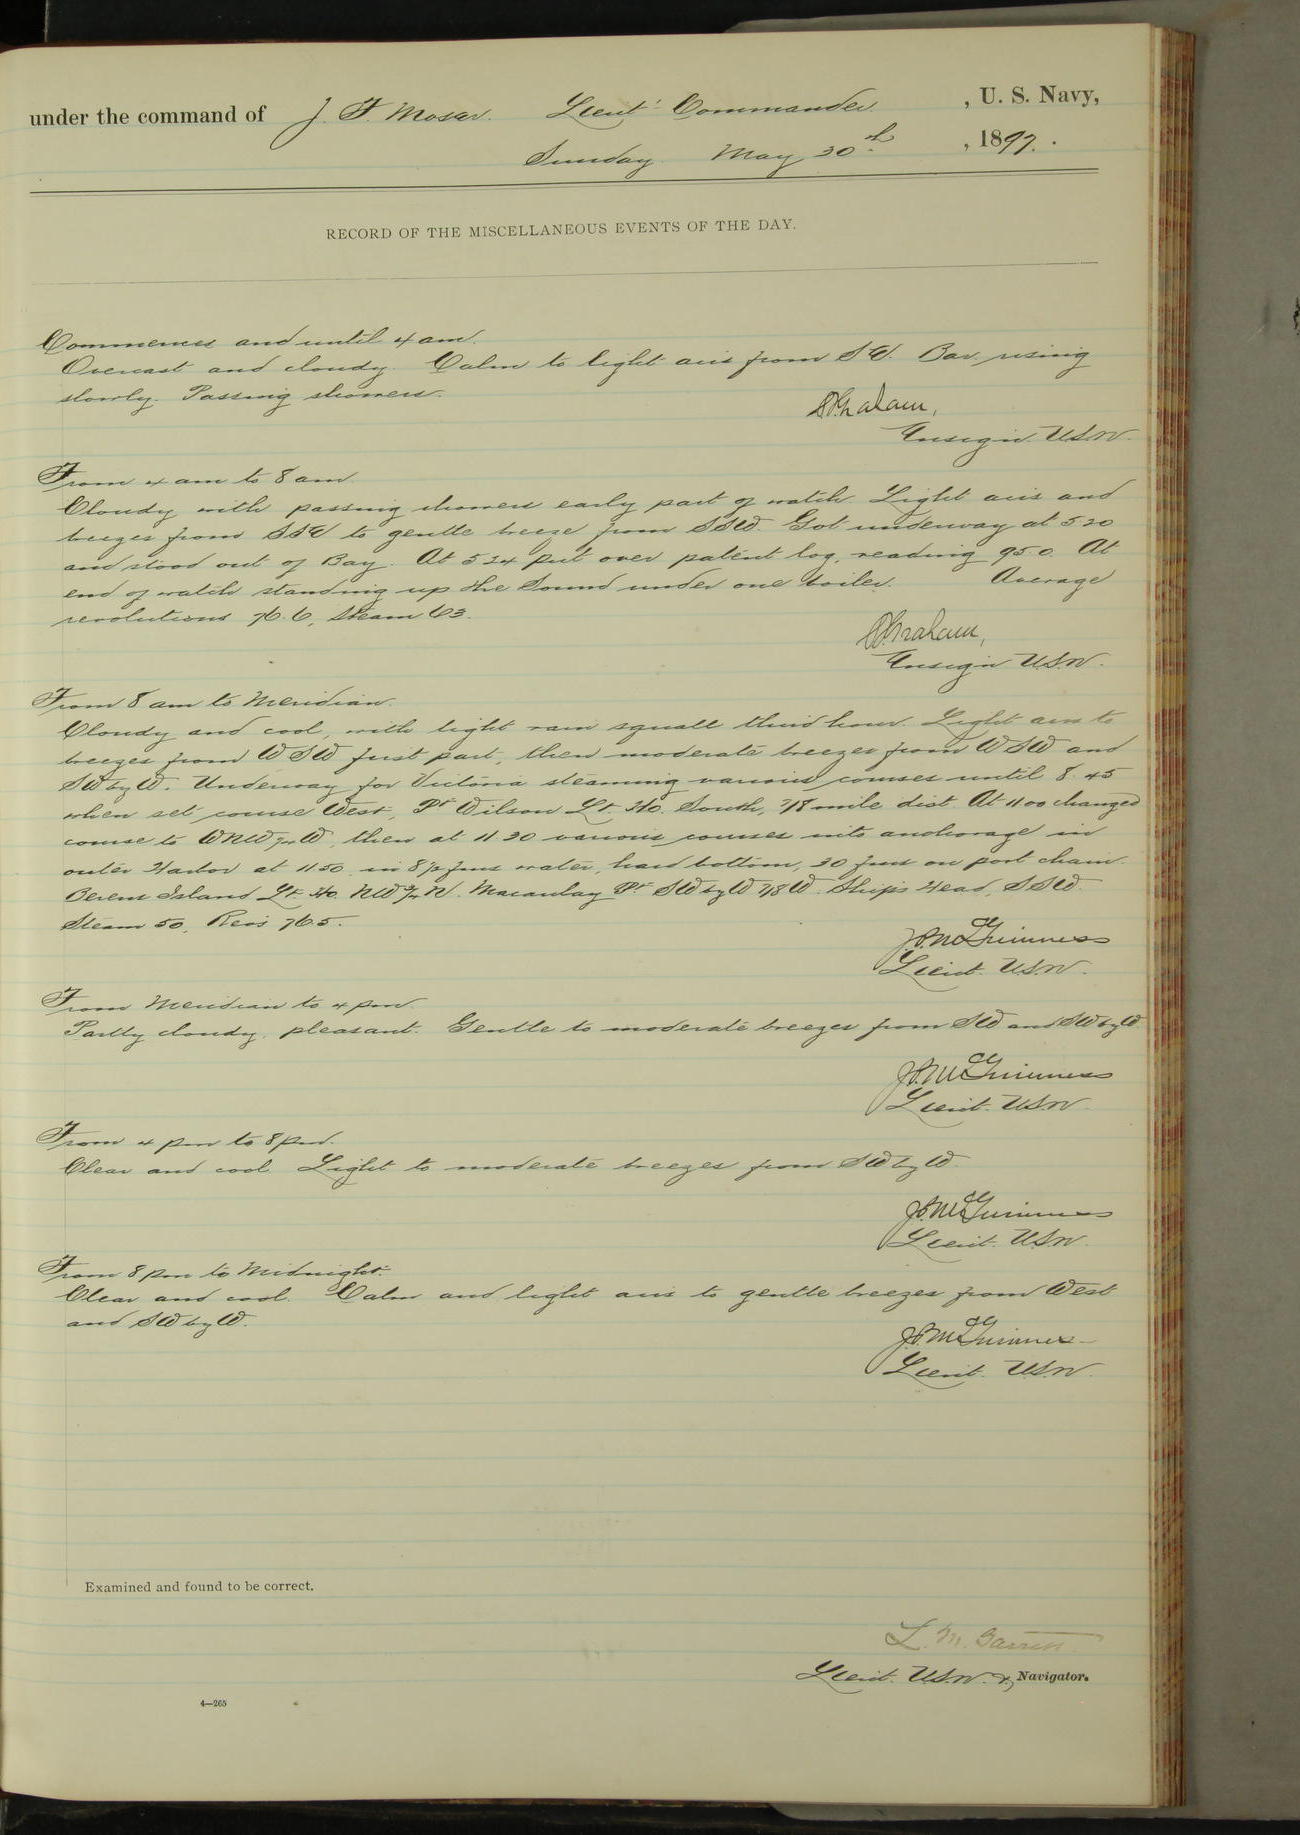 under the command of J. F. Moser. Lieut. Commander , U. S. Navy,
Sunday May 30th , 1897.
RECORD OF THE MISCELLANEOUS EVENTS OF THE DAY.
Commences and until 4 am.
Overcast and cloudy. Calm to light airs from SE. Bar. rising
slowly. Passing showers.
Graham,
Ensign USN.
From 4 am to 8 am.
Cloudy with passing showers early part of watch. Light airs and
breezes from SSE to gentle breeze from SSW. Got underway at 5 20
and stood out of Bay. At 5 24 put over patent log, reading 95 0. At
end of watch standing up the Sound under one boiler. Average
revolutions 76.6, Steam 63.
Graham,
Ensign U.S.N.
From 8 am to Meridian.
Cloudy and cool, with light rain squall third hour. Light airs to
breezes from WSW first part, then moderate breezes from WSW and
SW by W. Underway for Victoria steaming various courses until 8.45
when set course West, Pt Wilson Lt. Ho. South, 7/8 mile dist. At 11 00 changed
course to WNW 3/4 W, then at 11.30 various courses into anchorage in
outer Harbor at 11 50 in 8 1/2 fms water, hard bottom, 30 fms on port chain.
Berens Island Lt. Ho. NW 3/4 N. Macaulay Pt SW by W 7/8 W. Ship's Head, SSW.
Steam 50, Revs 76 5.
J.P. McGuinness
Lieut. U.S.N.
From Meridian to 4 pm.
Partly cloudy, pleasant. Gentle to moderate breezes from SW and SW by W.
J.P. McGuinness
Lieut. U.S.N.
From 4 pm to 8 pm.
Clear and cool. Light to moderate breezes from SW by W.
J.P. McGuinness
Lieut. U.S.N.
From 8 pm to Midnight.
Clear and cool. Calm and light airs to gentle breezes from West
and SW by W.
J.P. McGuinness
Lieut. U.S.N.
Examined and found to be correct.
L. M. Garrett
Lieut. U.S.N. & Navigator.
4—265